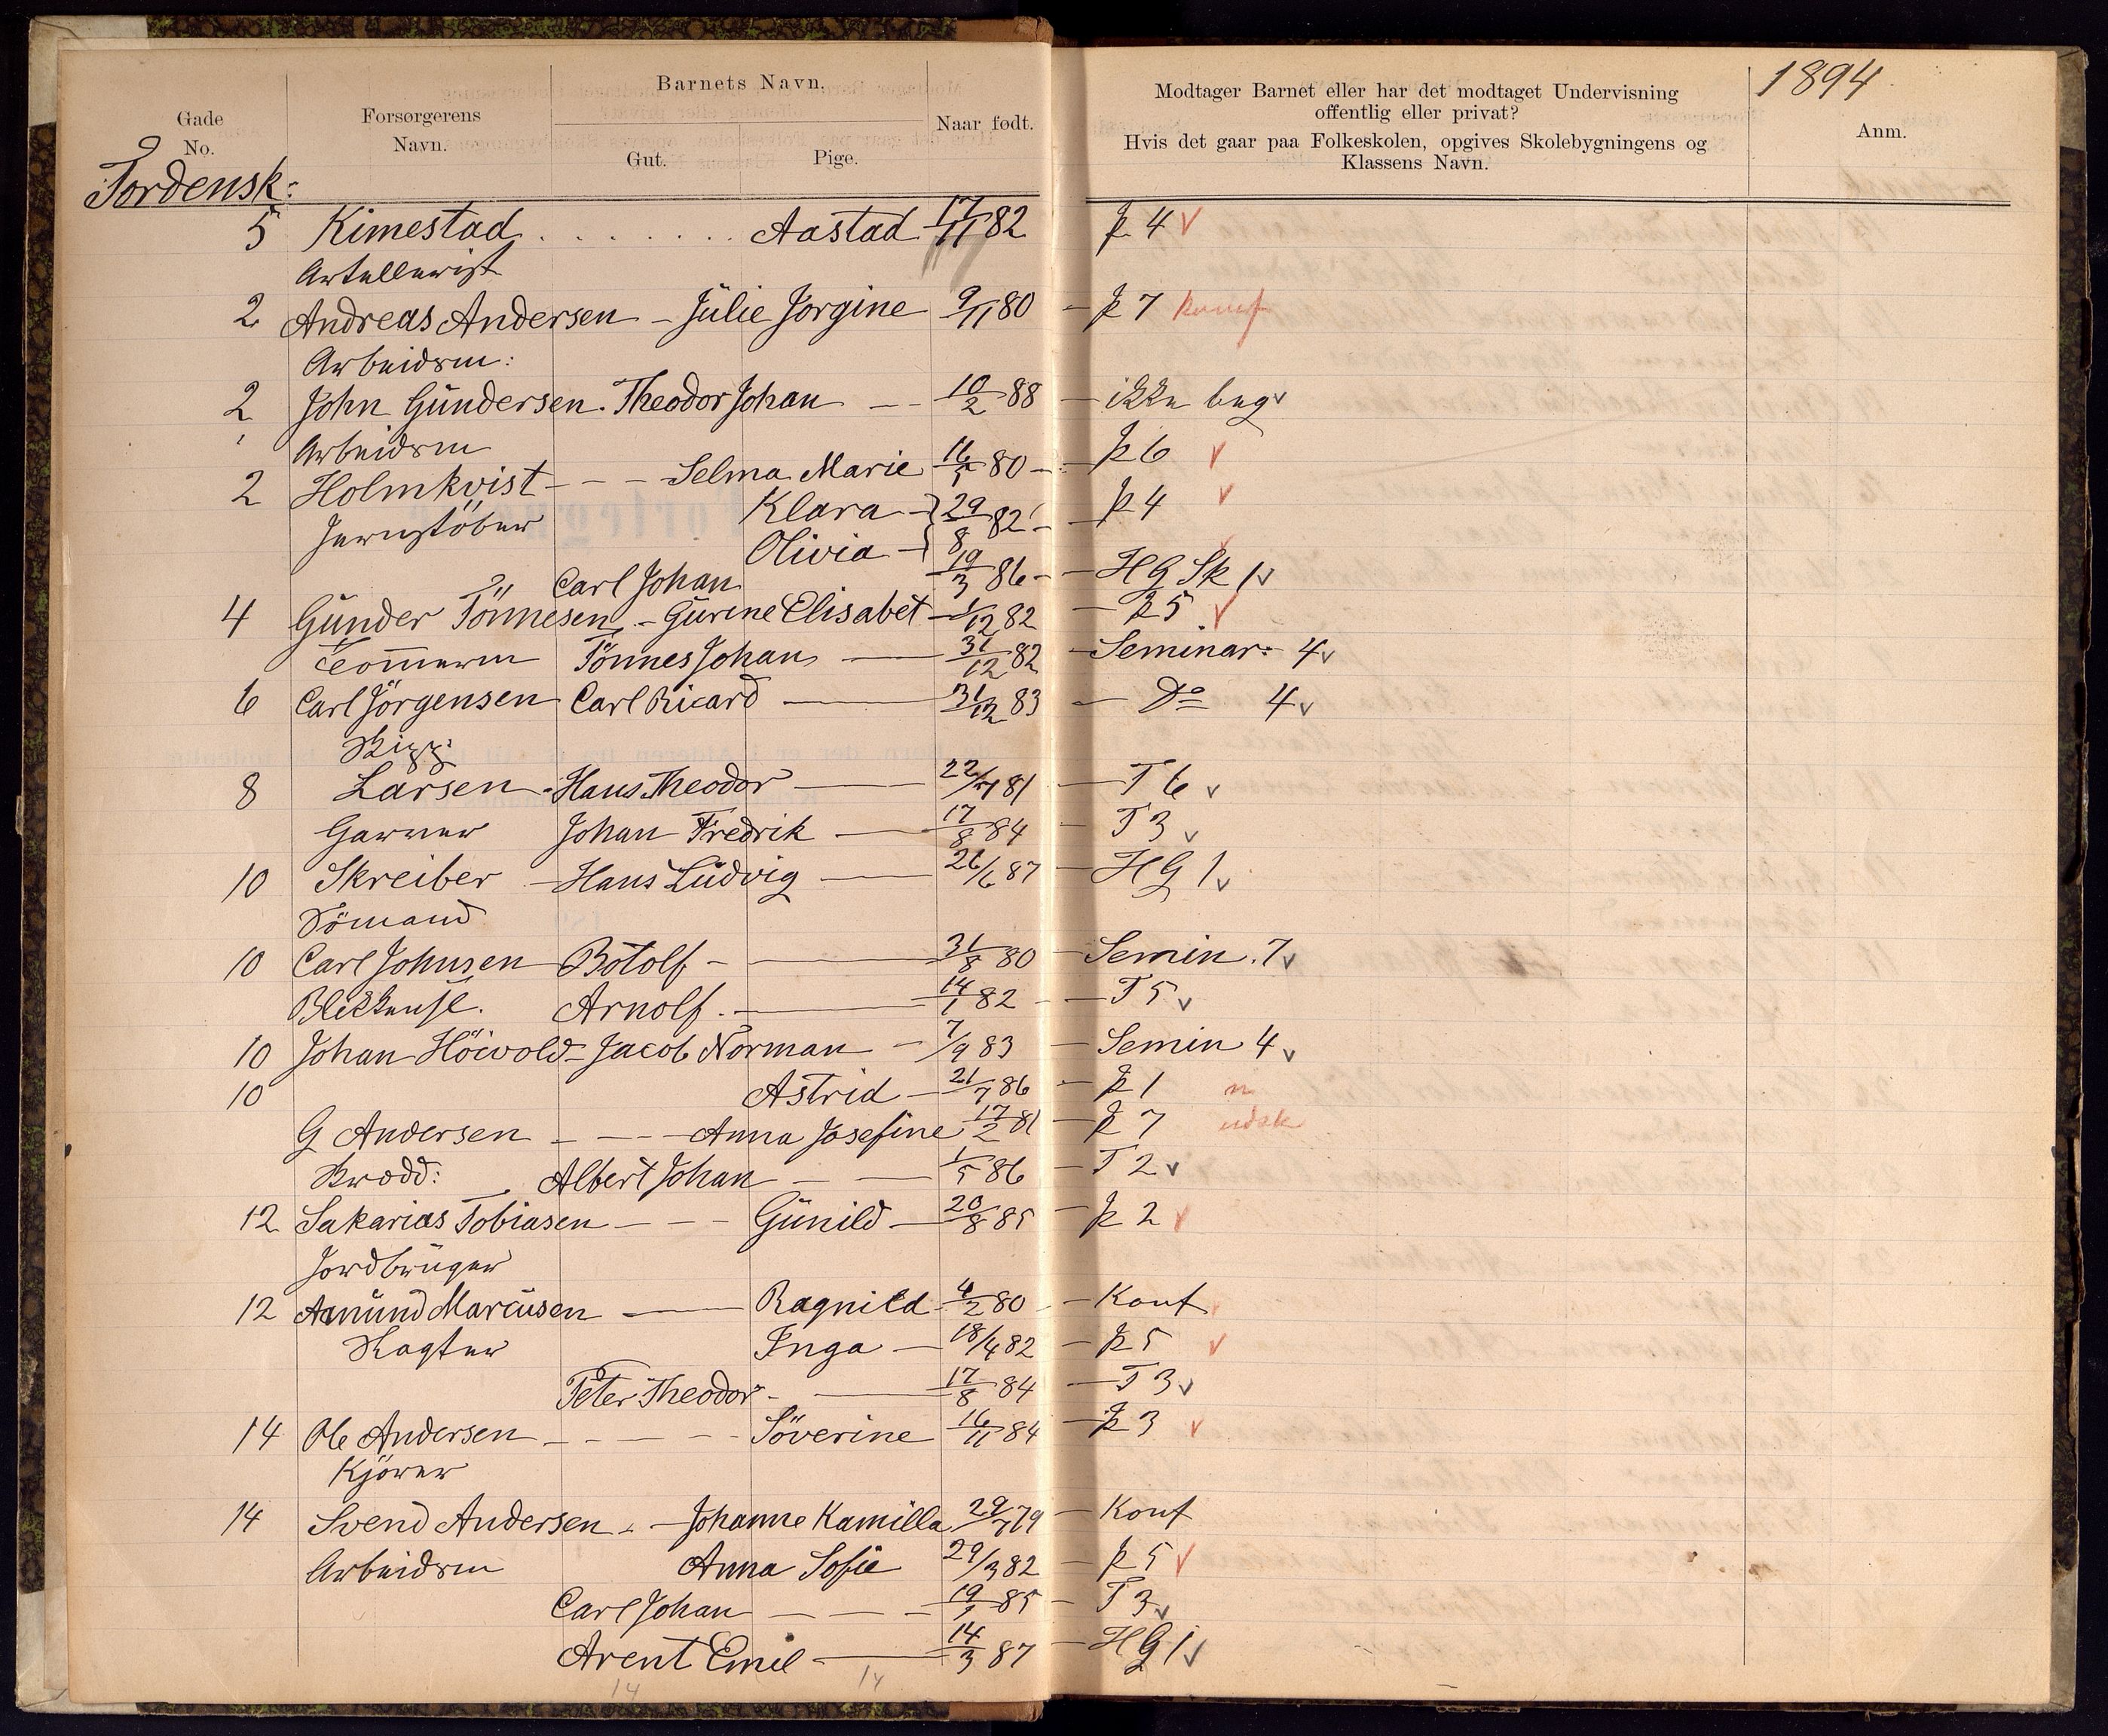 1894
Gade No. Forsørgerens Navn. Barnets Navn. Gut. Pige. Naar født. Modtager Barnet eller har det modtaget Undervisning offentlig eller privat? Hvis det gaar paa Folkeskolen, opgives Skolebygningens og Klassens Navn. Anm.
Tordensk:
5 Kimestad . . . . . . . . Aastad 17/11 82 p 4 v
Artellerist
2 Andreas Andersen - Julie Jorgine 9/11 80 - p 7 Konf
Arbeidsm:
2 John Gundersen. Theodor Johan - - 10/2 88 - ikke beg v
Arbeidsm
2 Holmkvist - - - Selma Marie 16/5 80 - - p 6 v
Jernstöber Klara } 29/8 82 - - p 4 v
Olivia }
" Carl Johan 19/3 86 - - HG Sk 1 v
4 Gunder Tönnesen - Gurine Elisabet - 1/12 82 - p 5 v
Tömmerm Tönnes Johan - 31/12 82 - Seminar: 4 v
6 Carl Jörgensen Carl Ricard - 31/12 83 - Do 4 v
Rigg:
8 Larsen - Hans Theodor - 22/7 81 - T 6 v
Garver Johan Fredrik - 17/8 84 - T 3 v
10 Skreiber - Hans Ludvig - 26/6 87 - HG 1 v
Sömand
10 Carl Johnsen Botolf - - 31/8 80 - Semin. 7 v
Blikkensl. Arnolf. - 14/1 82 - - T 5 v
10 Johan Höivold - Jacob Norman - 7/9 83 - Semin 4 v
10 Astrid - 21/7 86 - p 1 n
G Andersen - - - - Anna Josefine 17/2 81 - p 7 udsk
Brødd: Albert Johan - - 1/5 86 - T 2 v
12 Sakarias Tobiasen - - - Gunild - 20/8 85 - p 2 v
Jordbruger
12 Amund Marcusen - Ragnild 4/2 80 - - Konf
Slagter Inga - 18/4 82 - p 5 v
Peter Theodor - - 17/8 84 - T 3 v
14 Ole Andersen - - - - - Söverine 16/11 84 - p 3 v
Kjörer
14 Svend Andersen - - Johanne Kamilla 29/7 79 - Konf
Arbeidsm Anna Sofie 29/3 82 - p 5 v
Carl Johan - - - 19/1 85 - T 3 v
Arent Emil - 14/3 87 - HG 1 v
14 14